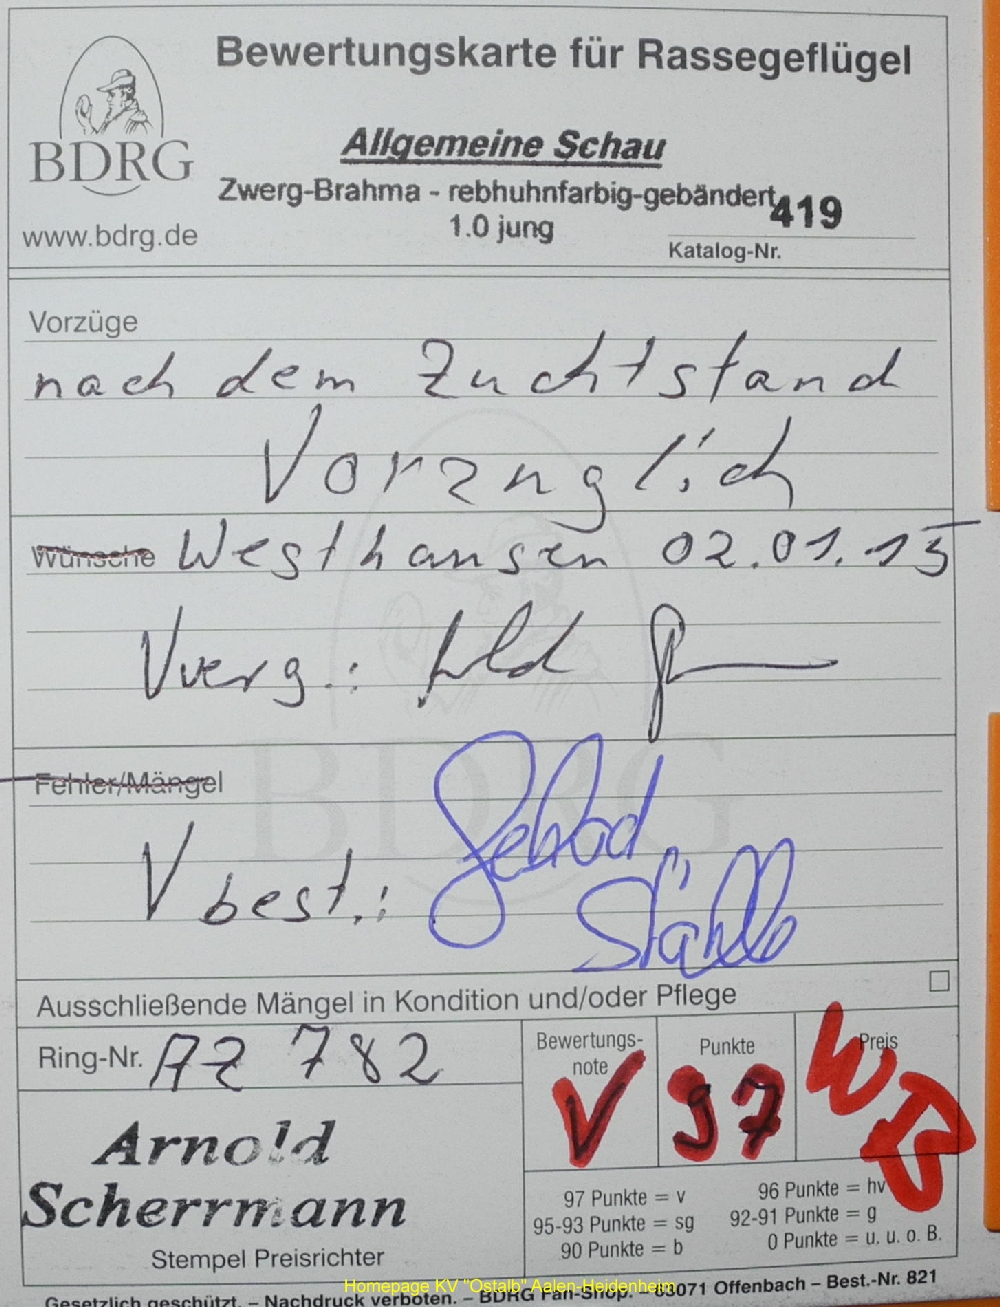 Bewertungskarte für Rassegeflügel
BDRG
www.bdrg.de
Allgemeine Schau
Zwerg-Brahma - rebhuhnfarbig-gebändert
419
1.0 jung
Katalog-Nr.
Vorzüge
nach dem Zuchtstand
Vorzüglich
Wünsche Westhausen 02.01.15
Vverg.:
Fehler/Mängel
V best.:
Stähle
Ausschließende Mängel in Kondition und/oder Pflege
Ring-Nr. AZ 782
Bewertungs-
note
V
Punkte
97
Preis
WB
Arnold
Scherrmann
Stempel Preisrichter
97 Punkte = v
96 Punkte = hv
95-93 Punkte = sg
92-91 Punkte = g
90 Punkte = b
0 Punkte = u. u. o. B.
Homepage KV "Ostalb" Aalen-Heidenheim
Gesetzlich geschützt. – Nachdruck verboten. – BDRG Fan-Shop. 63071 Offenbach – Best.-Nr. 821